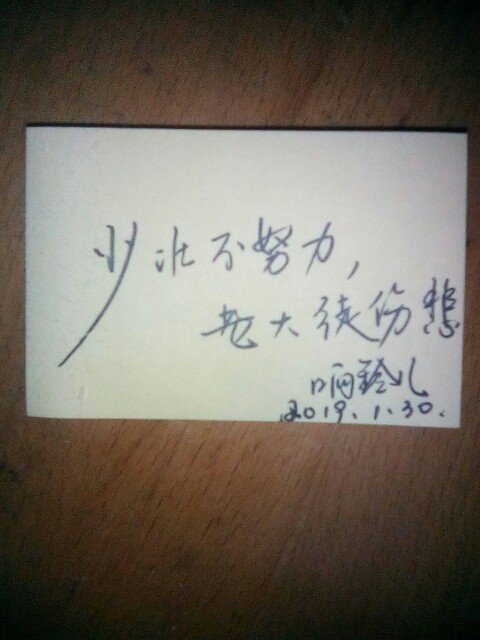 少壮不努力，
老大徒伤悲
响铃儿
2019.1.30.